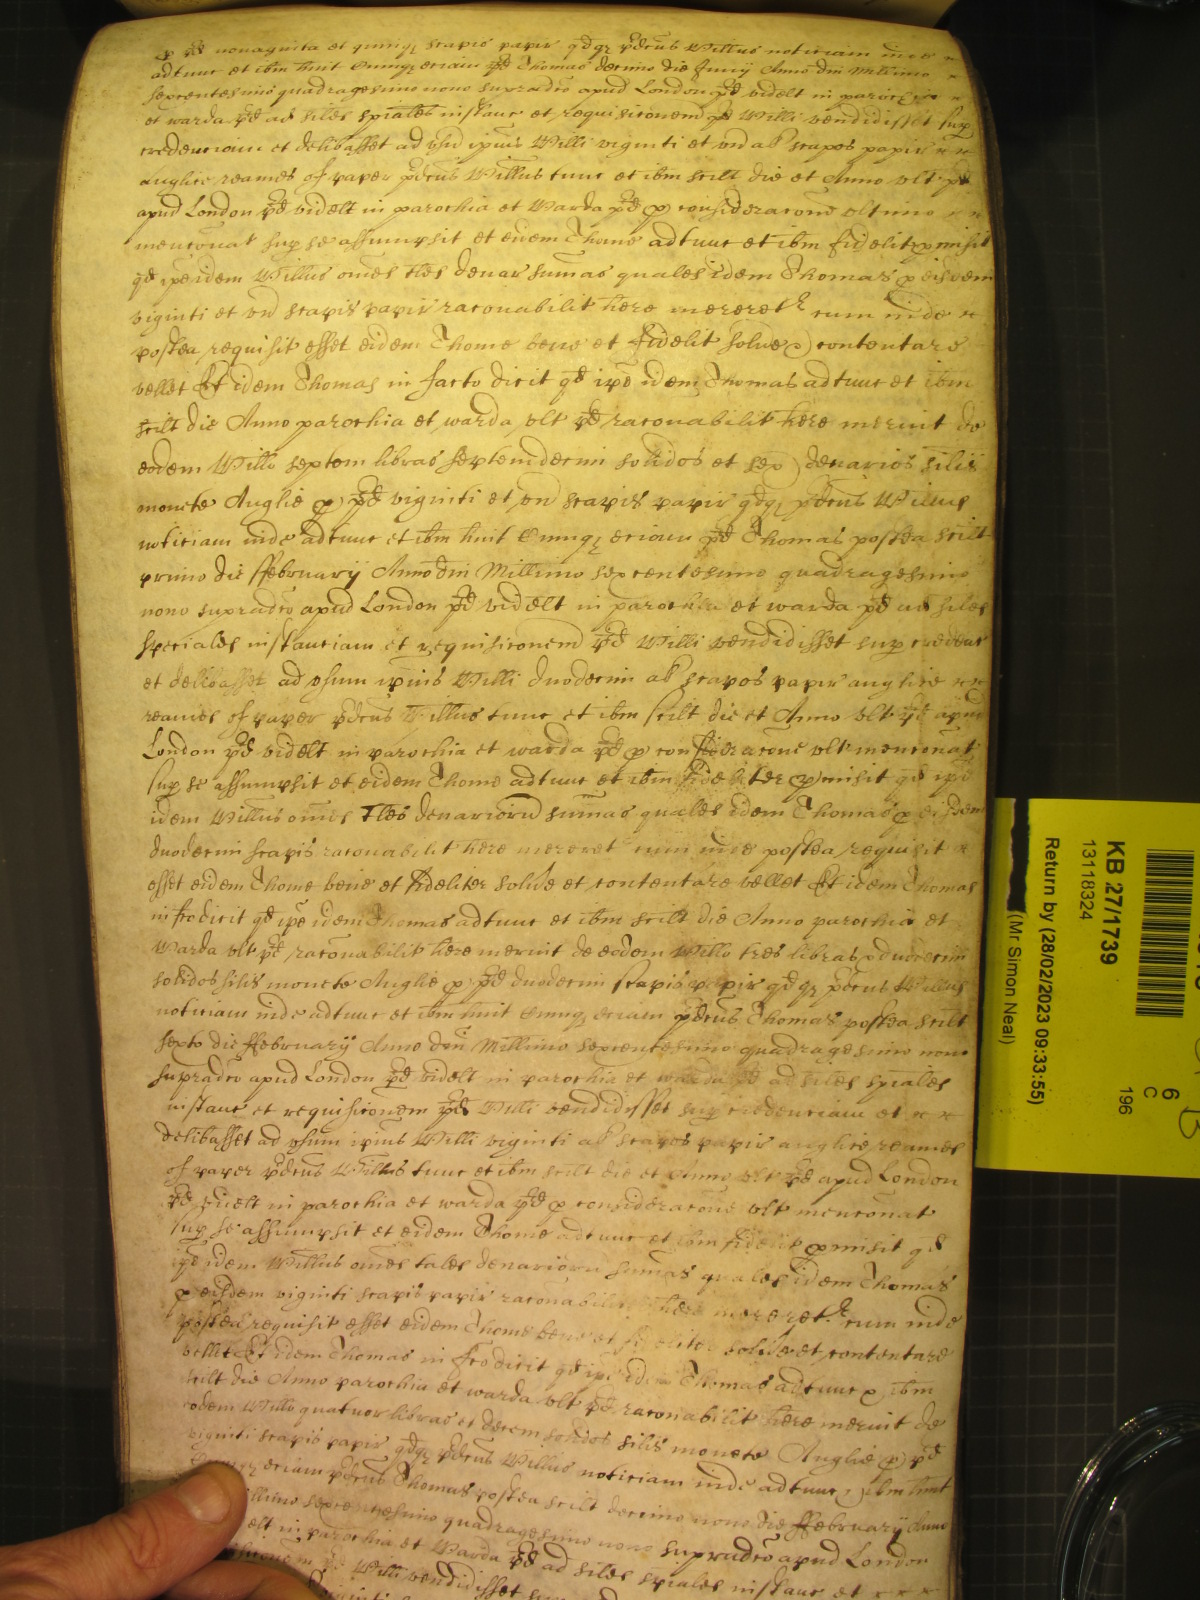 p pd nonaginta et quinqz scapis papir qdqz pdcus Willus noticiam inde
adtunc et ibm huit Cumqz eciam pd Thomas decimo die Junij Anno dni Millimo
septentesimo quadragesimo nono supradco apud London pd videlt in parochia
et warda pd ad siles spiales instanc et requisiconem pd Willi vendidisset sup
credenciam et delibasset ad usu ipius Willi viginti et un al scapos papir
anglice reames of paper pdcus Willus tunc et ibm scilt die et Anno ult pd
apud London pd videlt in parochia et Warda pd p consideracone ultimo
menconat sup se assumpsit et eidem Thome adtunc et ibm fidelit pmisit
qd ipe idem Willus omes tles denar sumas quales idem Thomas p eisdem
viginti et un scapis papir raconabilit here mereret cum inde
postea requisit esset eidem Thome bene et fidelit solve & contentare
vellet Et idem Thomas in facto dicit qd ipe idem Thomas adtunc et ibm
scilt die Anno parochia et warda ult pd raconabilit here meruit de
eodem Willo septem libras septemdecim solidos et sex denarios silis
monete Anglie p pd viginti et un scapis papir qdqz pdcus Willus
noticiam inde adtunc et ibm huit Cumqz eciam pd Thomas postea scilt
primo die ffebruarij Anno dni Millimo septentesimo quadragesimo
nono supradco apud London pd videlt in parochia et warda pd ad siles
speciales instanciam et requisiconem pd Willi vendidisset sup credenc
et delibasset ad usum ipius Willi duodecim al scapos papir anglice
reames of paper pdcus Willus tunc et ibm scilt die et Anno ult pd apud
London pd videlt in parochia et warda pd p consideracone ult menconat
sup se assumpsit et eidem Thome adtunc et ibm fideliter pmisit qd ipe
idem Willus omes tles denarioru sumas quales idem Thomas p eisdem
duodecim scapis raconabilit here mereret cum inde postea requisit
esset eidem Thome bene et fideliter solve et contentare vellet Et idem Thomas
in fco dicit qd ipe idem Thomas adtunc et ibm scilt die Anno parochia et
Warda ult pd raconabilit here meruit de eodem Willo tres libras & duodecim
solidos silis monete Anglie p pd duodecim scapis papir qdqz pdcus Willus
noticiam inde adtunc et ibm huit Cumqz eciam pdcus Thomas postea scilt
sexto die ffebruarij Anno dni Millimo septentesimo quadragesimo nono
supradco apud London pd videlt in parochia et warda pd ad siles spiales
instanc et requisiconem pd Willi vendidisset sup credenciam et
delibasset ad usum ipius Willi viginti al scapos papir anglice reames
of paper pdcus Willus tunc et ibm scilt die et Anno ult pd apud London
pd videlt in parochia et warda pd p consideracone ult menconat
sup se assumpsit et eidem Thome adtunc et ibm fidelit pmisit qd
ipe idem Willus omes tales denarioru sumas quales idem Thomas
p eisdem viginti scapis papir raconabilit here mereret cum inde
postea requisit esset eidem Thome bene et fideliter solve et contentare
vellet Et idem Thomas in fco dicit qd ipe idem Thomas adtunc & ibm
scilt die Anno parochia et warda ult pd raconabilit here meruit de
eodem Willo quatuor libras et decem solidos silis monete Anglie p pd
viginti scapis papir qdqz pdcus Willus noticiam inde adtunc & ibm huit
Cumqz eciam pdcus Thomas postea scilt decimo nono die ffebruarij Anno
septentesimo quadragesimo nono supradco apud London
in parochia et Warda pd ad siles spiales instanc et
pd Willi vendidisset sup
KB 27/1739
13118324
Return by (28/02/2023 09:33:55)
(Mr Simon Neal)
6
C
196
B